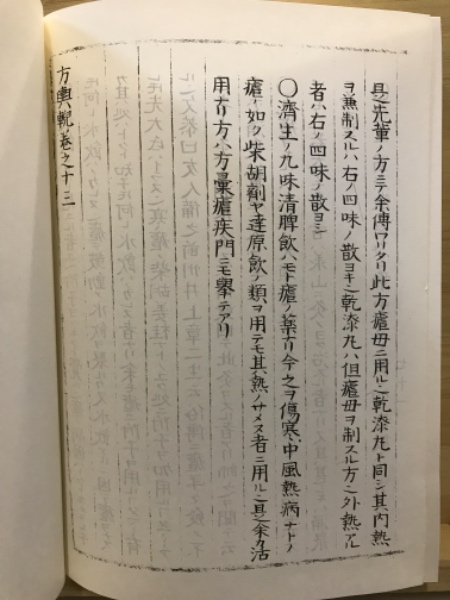 是先輩ノ方ニテ余傳ワリタリ此方瘧母ニ用ル乾漆丸ト同シ其内熱
ヲ兼制スルハ右ノ四味ノ散ヨキ乾漆丸ハ但瘧母ヲ制スル方ニ外熱アル
者ハ右ノ四味ノ散ヨシ
〇濟生ノ九味清脾飲ハモト瘧ノ薬ナリ今之ヲ傷寒、中風熱病ナトノ
瘧ノ如ク柴胡劑ヤ達原飲ノ類ヲ用テモ其熱ノサメヌ者ニ用ル是余カ活
用ナリ方ハ方彙瘧疾門ニモ擧テアリ
方輿輗巻之十三